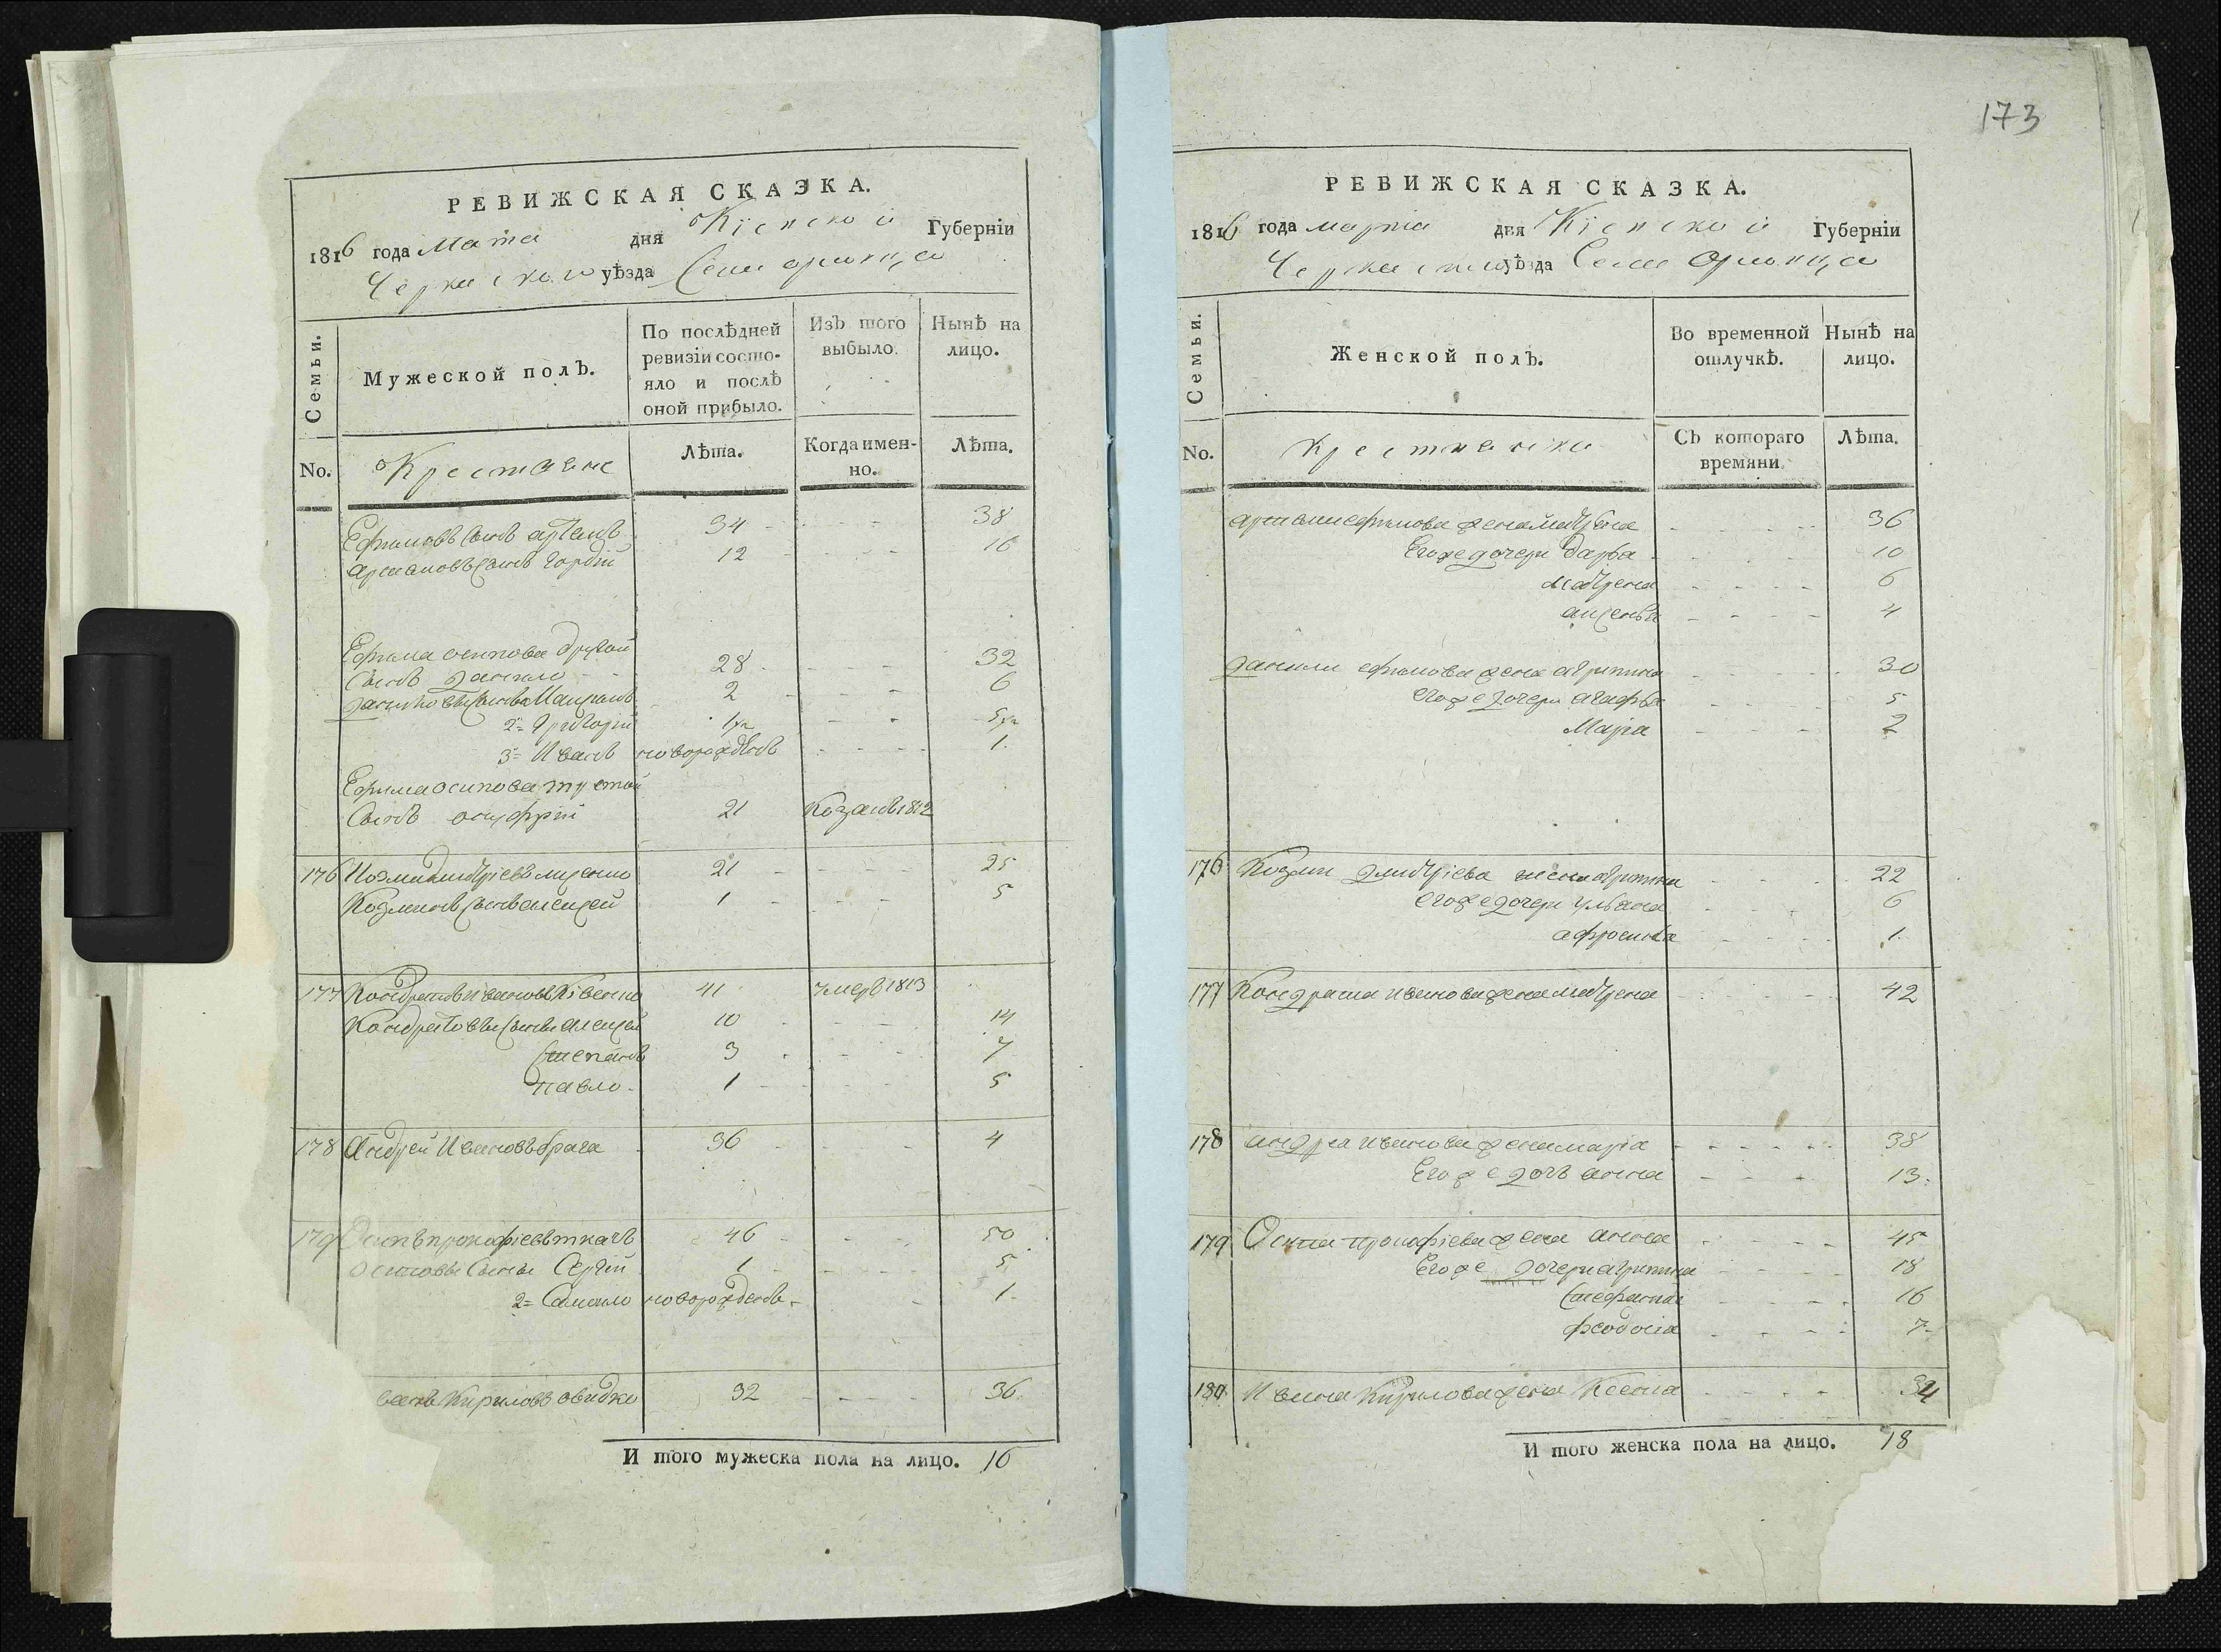 173
РЕВИЖСКАЯ СКАЗКА.
1816 года Марта дня Кіевской Губерніи
Черкаского уѣзда Села Орловца
Семьи. Мужеской полъ. По послѣдней ревизіи состояло и послѣ оной прибыло. Изъ того выбыло. Нынѣ на лицо.
No. Крестьяне Лѣта. Когда именно. Лѣта.
Ефимовъ сынъ Артемъ 34 - - - 38
Артемовъ сынъ Гордій 12 - - - 16
Ефима осипова другой
сынъ данило 28 - - - 32
даниловы сыновья Максимъ 2 - - - 6
2й Григорій 1/2 - 5 1/2
3й Иванъ новорожденъ - - - 1
Ефима осипова третій
Сынъ онуфрій 21 Козакъ 1812
176 Козма дмитріевъ 21 - - - 25
Козминъ сынъ алексей 1 - - - 5
177 Кондратъ ивановъ Кивенко 41 умеръ 1813
Кондратовы сыны алексей 10 - - - 14
Степанъ 3 - - - 7
павло 1 - - - 5
178 Андрей Ивановъ брага 36 - - - 4
179 Осипъ прокофіевъ ткачъ 46 - - - 50
Осиповы сыны Сергій 1 - - - 5
2й Самойло новорожденъ - - 1
ванъ Кириловъ свидко 32 - - - 36
И того мужеска пола на лицо. 16
РЕВИЖСКАЯ СКАЗКА.
1816 года марта дня Кіевской Губерніи
Черкаского уѣзда Села Орловца
Семьи. Женской полъ. Во временной отлучкѣ. Нынѣ на лицо.
No. Крестьянки Съ котораго времяни. Лѣта.
артема ефимова жена матрена - - - 36
Его же дочери Дарья - - - 10
матрена - - - 6
аксенья - - - 4
данила ефимова жена агрипина - - - 30
его же дочери агафья - - - 5
Марія - - - 2
176 Козми дмитріева жена агрипина - - - 22
его же дочери ульяна - - - 6
афросинья - - - 1
177 Кондрата иванова жена матрена - - - 42
178 андрея иванова жена марія - - - 38
Его же дочь анна - - - 13
179 Осипа прокофіева жена анна - - - 45
Его же дочери агрипина - - - 18
стефанида - - - 16
феодосія - - - 7
180 Ивана Кирилова жена Ксенія - - - 34
И того женска пола на лицо. 18